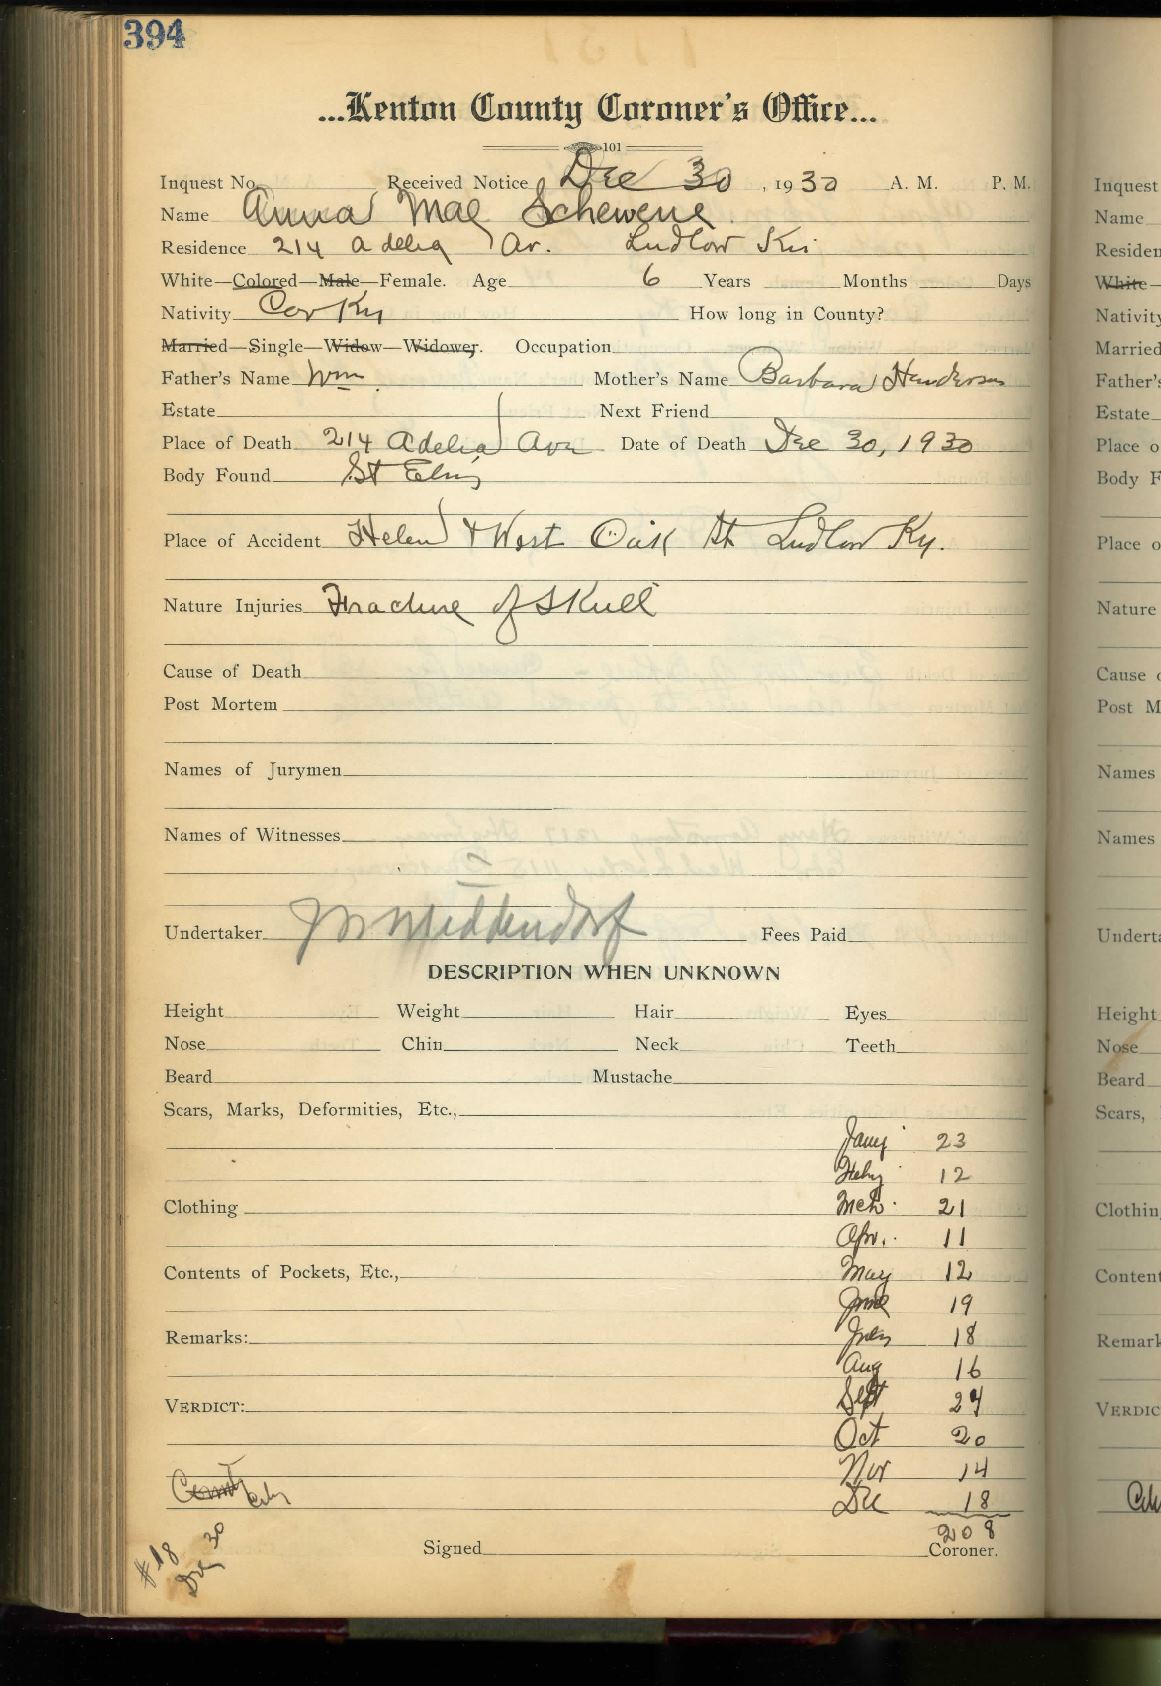 394
...Kenton County Coroner's Office...
101
Inquest No. Received Notice Dec 30, 1930 A. M. P. M.
Name Anna Mae Schewene
Residence 214 Adelia Av. Ludlow Ky.
White—Colored—Male—Female. Age 6 Years Months Days
Nativity Cov Ky How long in County?
Married—Single—Widow—Widower. Occupation
Father's Name Wm Mother's Name Barbara Henderson
Estate Next Friend
Place of Death 214 Adelia Ave Date of Death Dec 30, 1930
Body Found St Eliz
Place of Accident Helen & West Oak St Ludlow Ky.
Nature Injuries Fracture of Skull
Cause of Death
Post Mortem
Names of Jurymen
Names of Witnesses
Undertaker Middendorf Fees Paid
DESCRIPTION WHEN UNKNOWN
Height Weight Hair Eyes
Nose Chin Neck Teeth
Beard Mustache
Scars, Marks, Deformities, Etc.,
Jany 23
Feby 12
Clothing Mch 21
Apr. 11
Contents of Pockets, Etc., May 12
June 19
Remarks: July 18
Aug 16
VERDICT: Sept 24
Oct 20
Nov 14
County City Dec 18
208
#18 Dec 30
Signed Coroner.
Inquest
Name
Residen
White—
Nativity
Married
Father's
Estate
Place o
Body F
Place o
Nature
Cause o
Post M
Names
Names
Underta
Height
Nose
Beard
Scars,
Clothin
Content
Remark
VERDIC